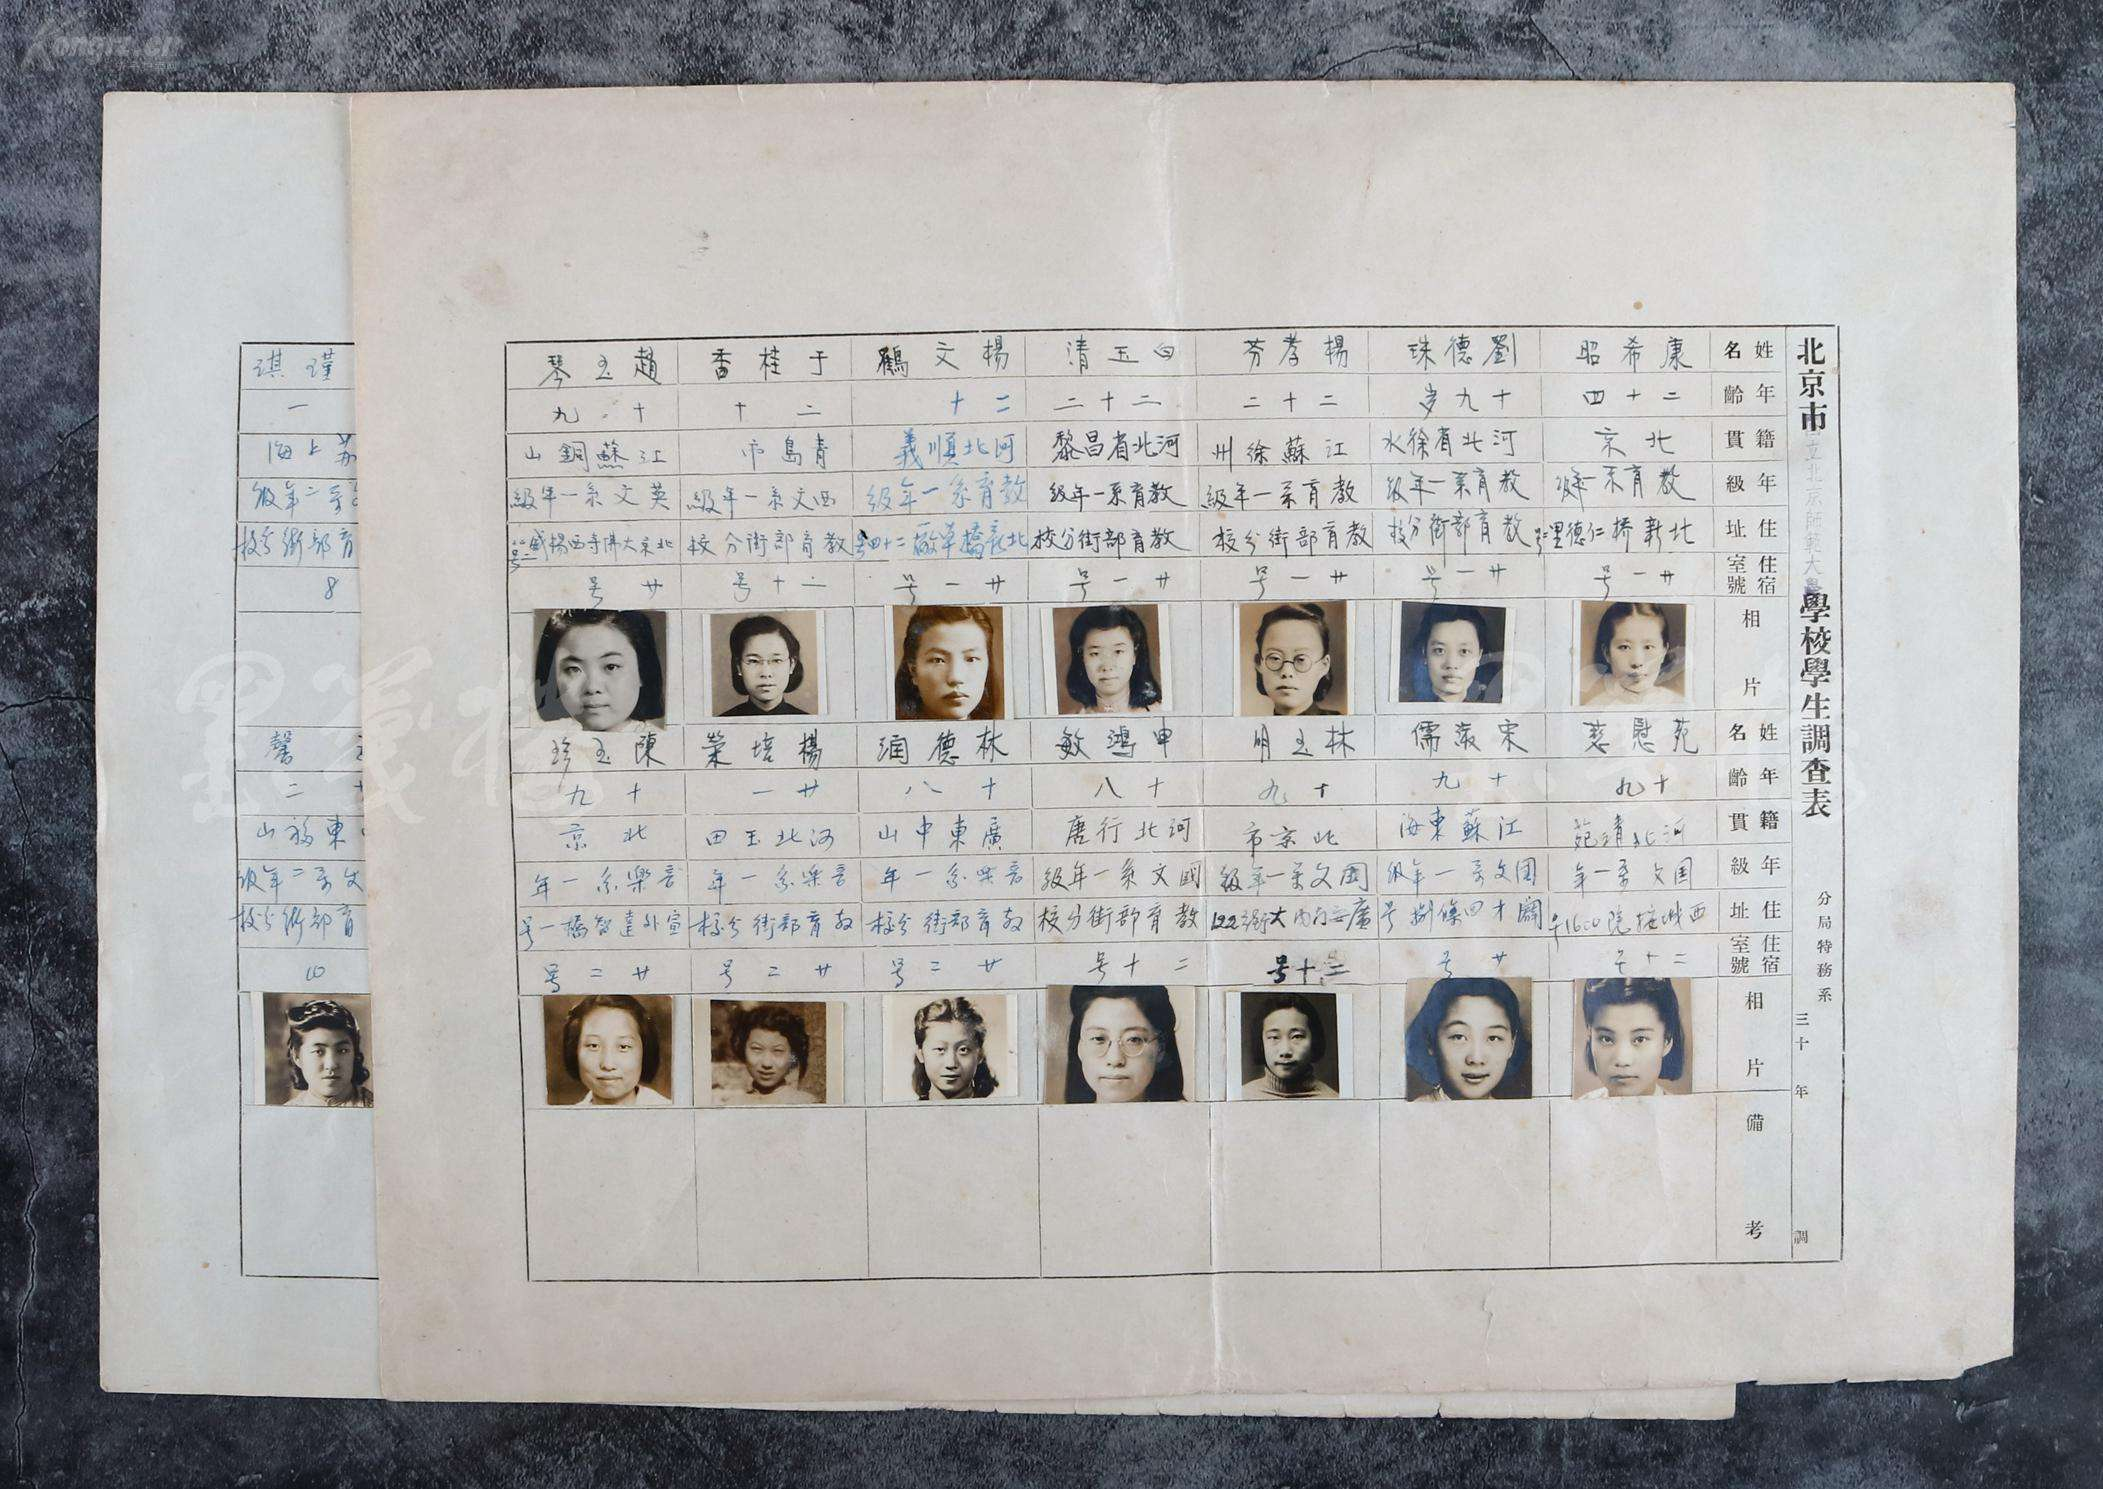 Kongfz.cn
北京市立北京師範大學學校學生調查表
分局特務系
三十 年 調
姓名 康希昭 劉德珠 楊孝芬 白玉清 楊文鶴 于桂香 趙玉琴
年齡 二十四 十九岁 二十二 二十二 二十 二十 十九
籍貫 北京 河北省徐水 江蘇徐州 河北省昌黎 河北順義 青島市 江蘇銅山
年級 教育系一年級 教育系一年級 教育系一年級 教育系一年級 教育系一年級 西文系一年級 英文系一年級
住址 北新橋仁德里 教育部街分校 教育部街分校 教育部街分校 北新橋草廠二十四号 教育部街分校 北京大佛寺西楊威
住宿室號 廿一号 廿一号 廿一号 廿一号 廿一号 二十号 廿号
相片
姓名 苑慰慈 宋淑儒 林玉明 申鴻敏 林德润 楊培榮 陳玉珍
年齡 十九 十九 十九 十八 十八 廿一 十九
籍貫 河北清苑 江蘇東海 北京市 河北行唐 廣東中山 河北玉田 北京
年級 国文系一年 国文系一年級 國文系一年級 國文系一年級 音樂系一年 音樂系一年 音樂系一年
住址 西城 闢才四條捌号 廣安门内大街122 教育部街分校 教育部街分校 教育部街分校 宣外達智橋一号
住宿室號 二十号 廿号 二十号 二十号 廿二号 廿二号 廿二号
相片
備考
瑾琪
一
蘇上海
系二年級
育部街分校
8
馨
十二
東福山
文系二年級
育部街分校
10